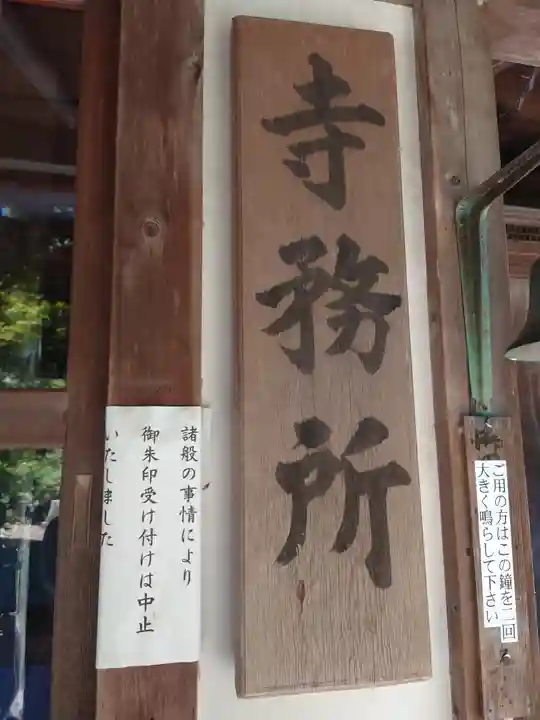 寺務所
諸般の事情により
御朱印受け付けは中止
いたしました
ご用の方はこの鐘を二回
大きく鳴らして下さい